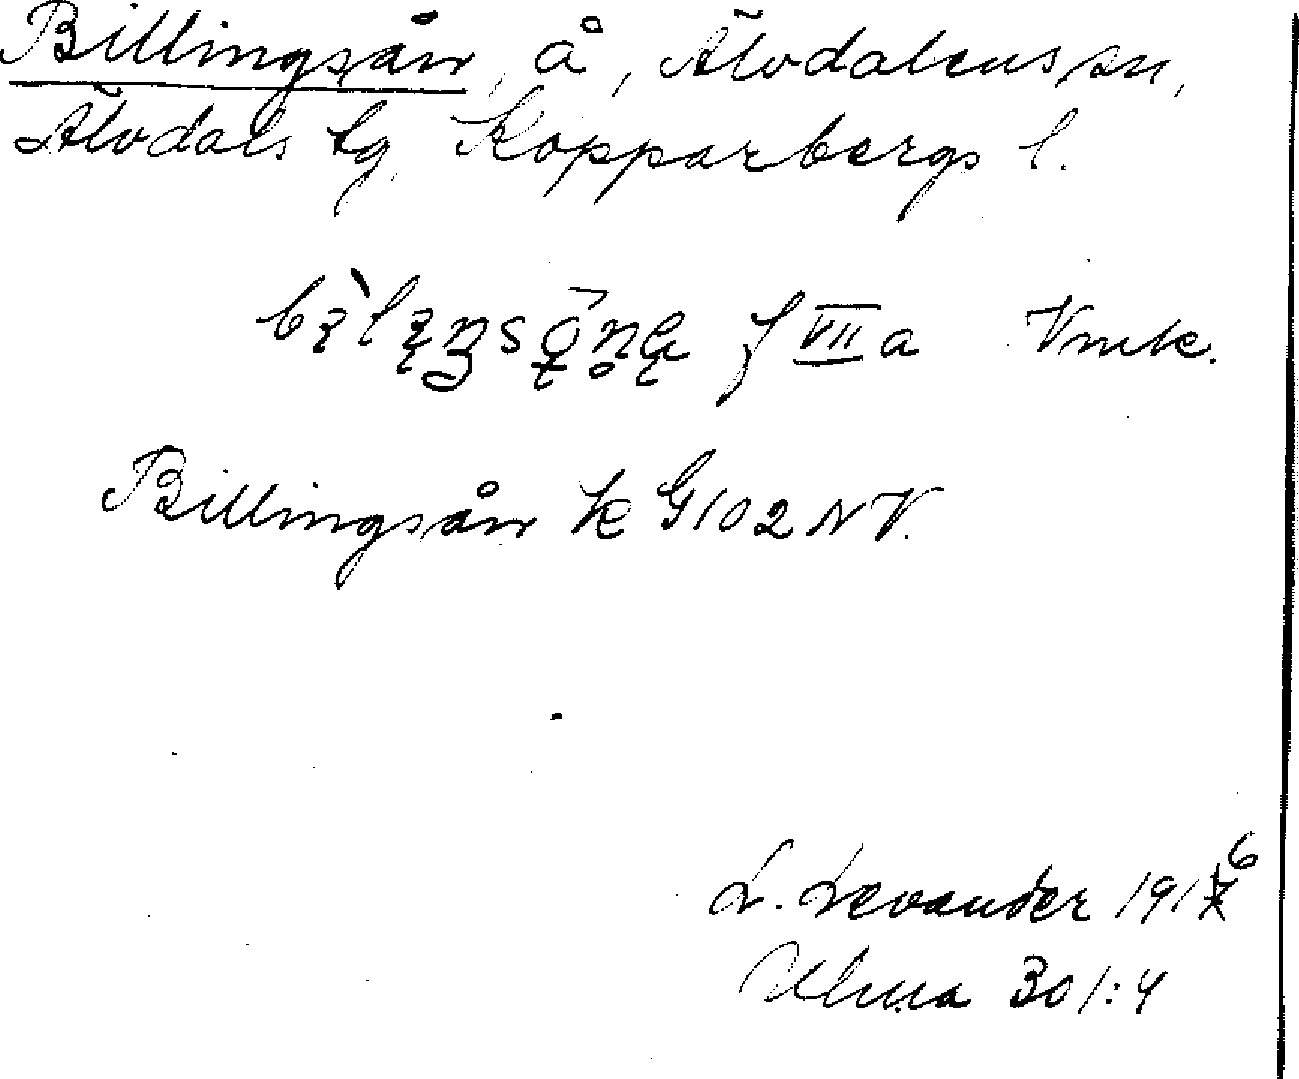 Billingsån, å, Älvdalens sn,
Älvdals tg, Kopparbergs l.
f VII a Vmk.
Billingsån k G 102 NV.
L. Levander 1916
Ulma 301:4